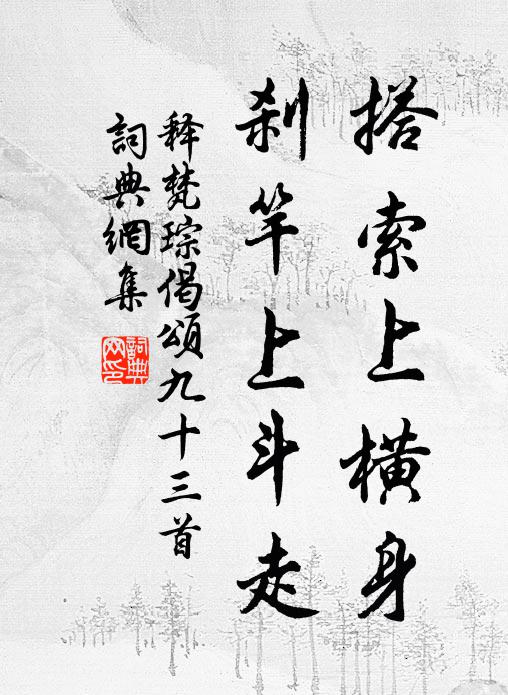 搭索上横身
刹竿上斗走
释梵琮偈頌九十三首
詞典網集
詞典網印